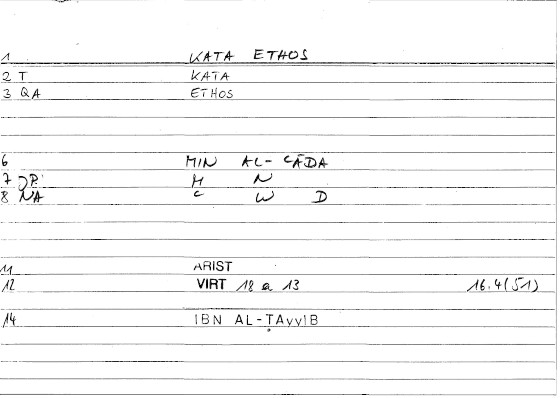 1 KATA ETHOS
2 T KATA
3 QA ETHOS
6 MIN AL-CĀDA
7 JP. M N
8 NA C W D
11 ARIST
12 VIRT 18 a 13 16.4(51)
14 IBN AL-ṬAyyIB